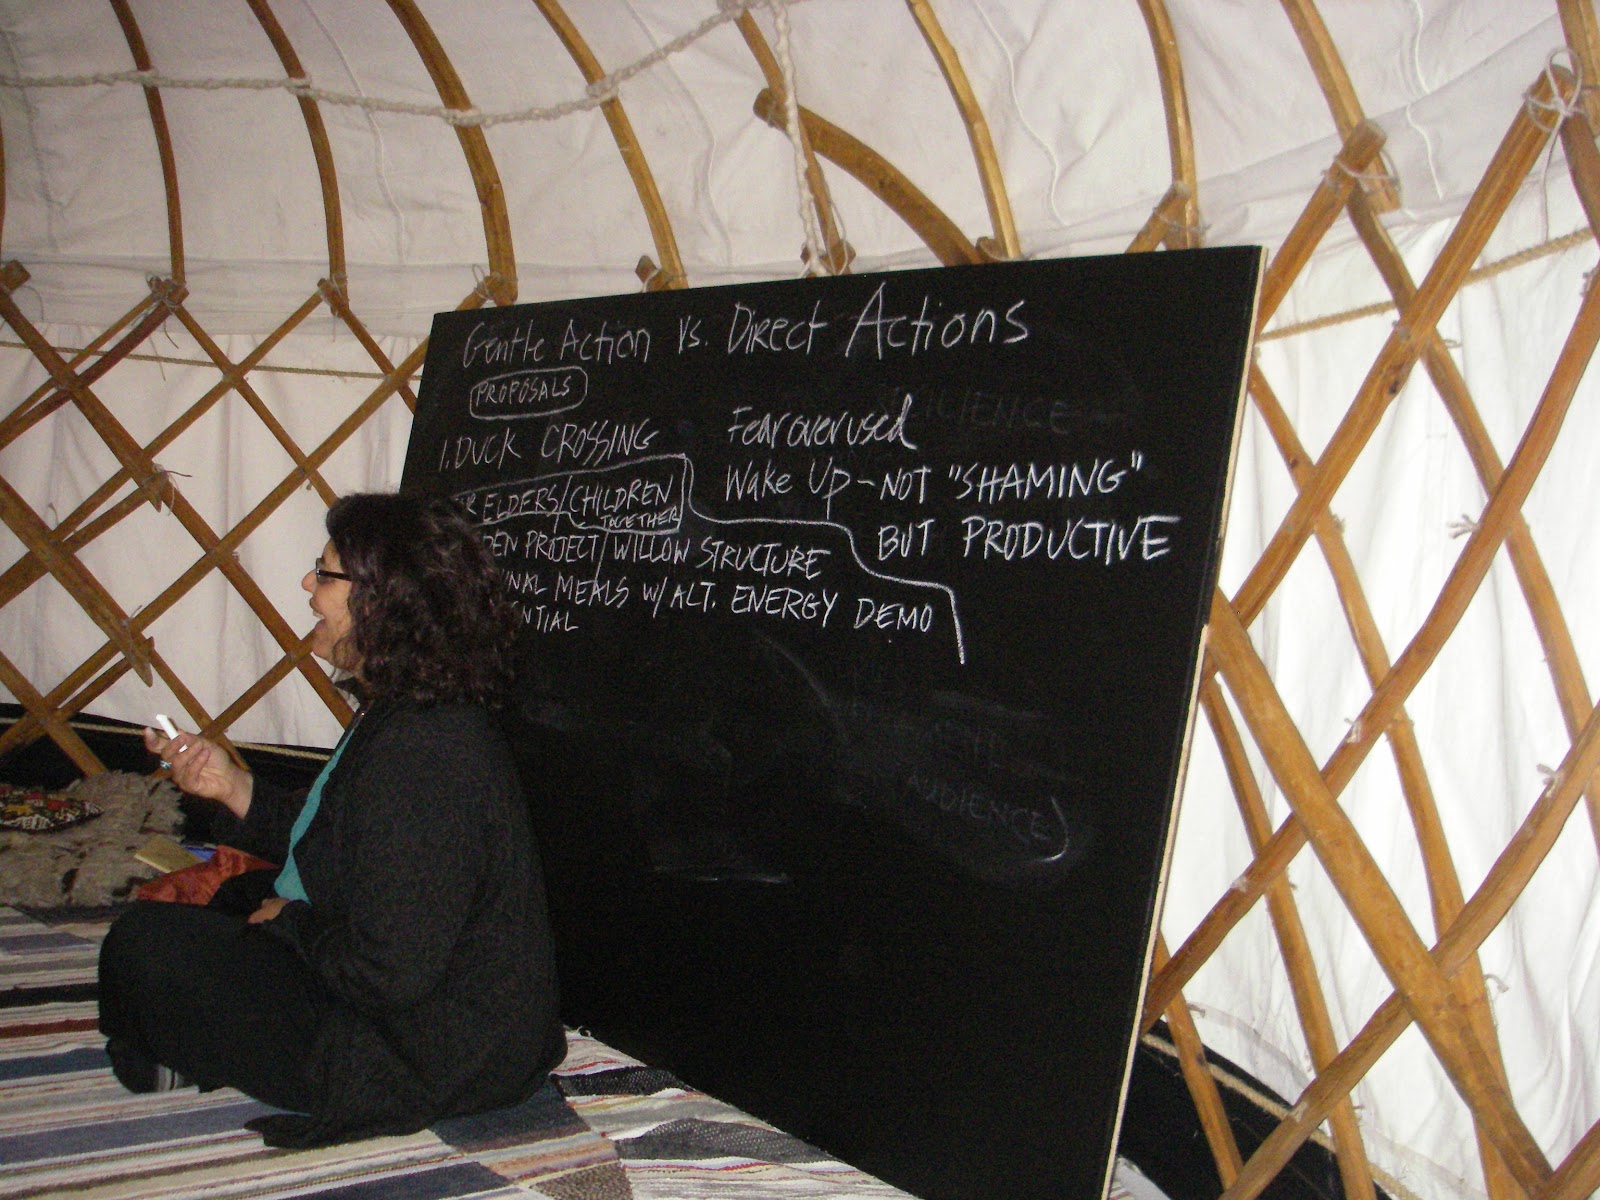 Gentle Action vs. Direct Actions
PROPOSALS
1. DUCK CROSSING
ELDERS/CHILDREN
TOGETHER
PROJECT/WILLOW STRUCTURE
MEALS w/ ALT. ENERGY DEMO
Fear overused
Wake Up - NOT "SHAMING"
BUT PRODUCTIVE
AUDIENCE)